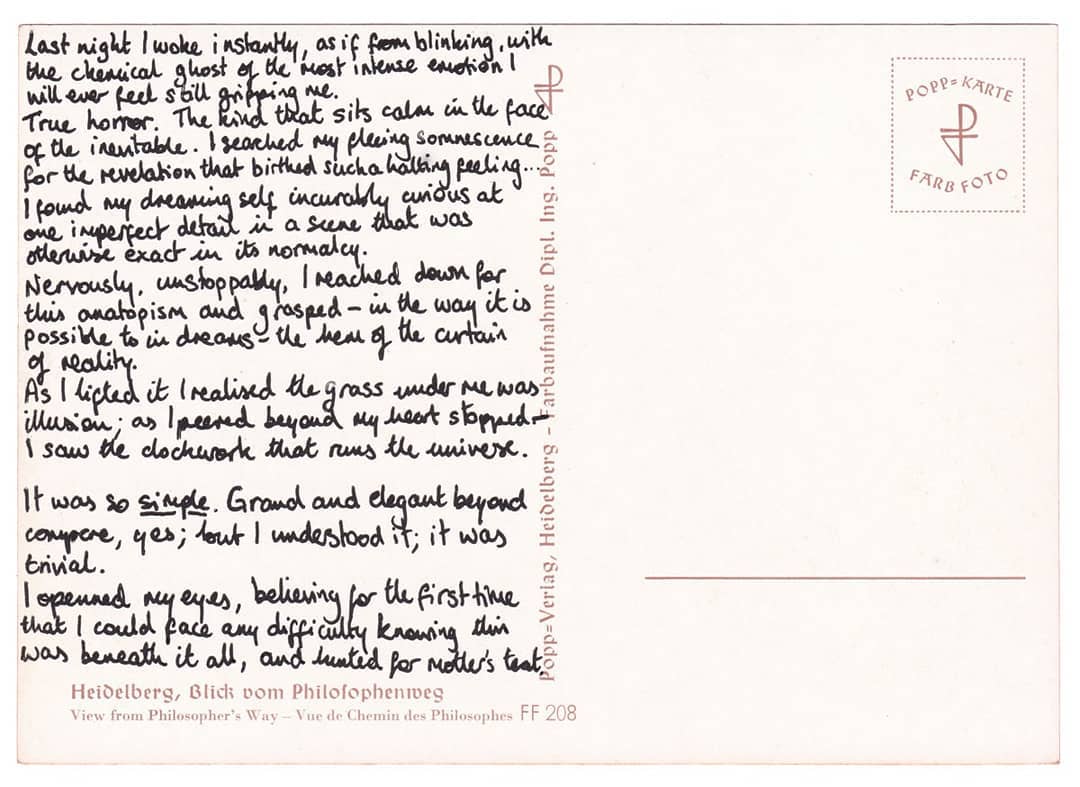 Last night I woke instantly, as if from blinking, with
the chemical ghost of the most intense emotion I
will ever feel still gripping me.
True horror. The kind that sits calm in the face
of the inevitable. I searched my fleeing somnescence
for the revelation that birthed such a halting feeling...
I found my dreaming self incurably curious at
one imperfect detail in a scene that was
otherwise exact in its normalcy.
Nervously, unstoppably, I reached down for
this anatopism and grasped – in the way it is
possible to in dreams – the hem of the curtain
of reality.
As I lifted it I realised the grass under me was
illusion; as I peered beyond my heart stopped –
I saw the clockwork that runs the universe.
It was so simple. Grand and elegant beyond
compare, yes; but I understood it; it was
trivial.
I openned my eyes, believing for the first time
that I could face any difficulty knowing this
was beneath it all, and hunted for mother's teat.
Heidelberg, Blick vom Philosophenweg
View from Philosopher's Way – Vue de Chemin des Philosophes FF 208
Popp=Verlag, Heidelberg – Farbaufnahme Dipl. Ing. Popp
POPP=KARTE
FARBFOTO